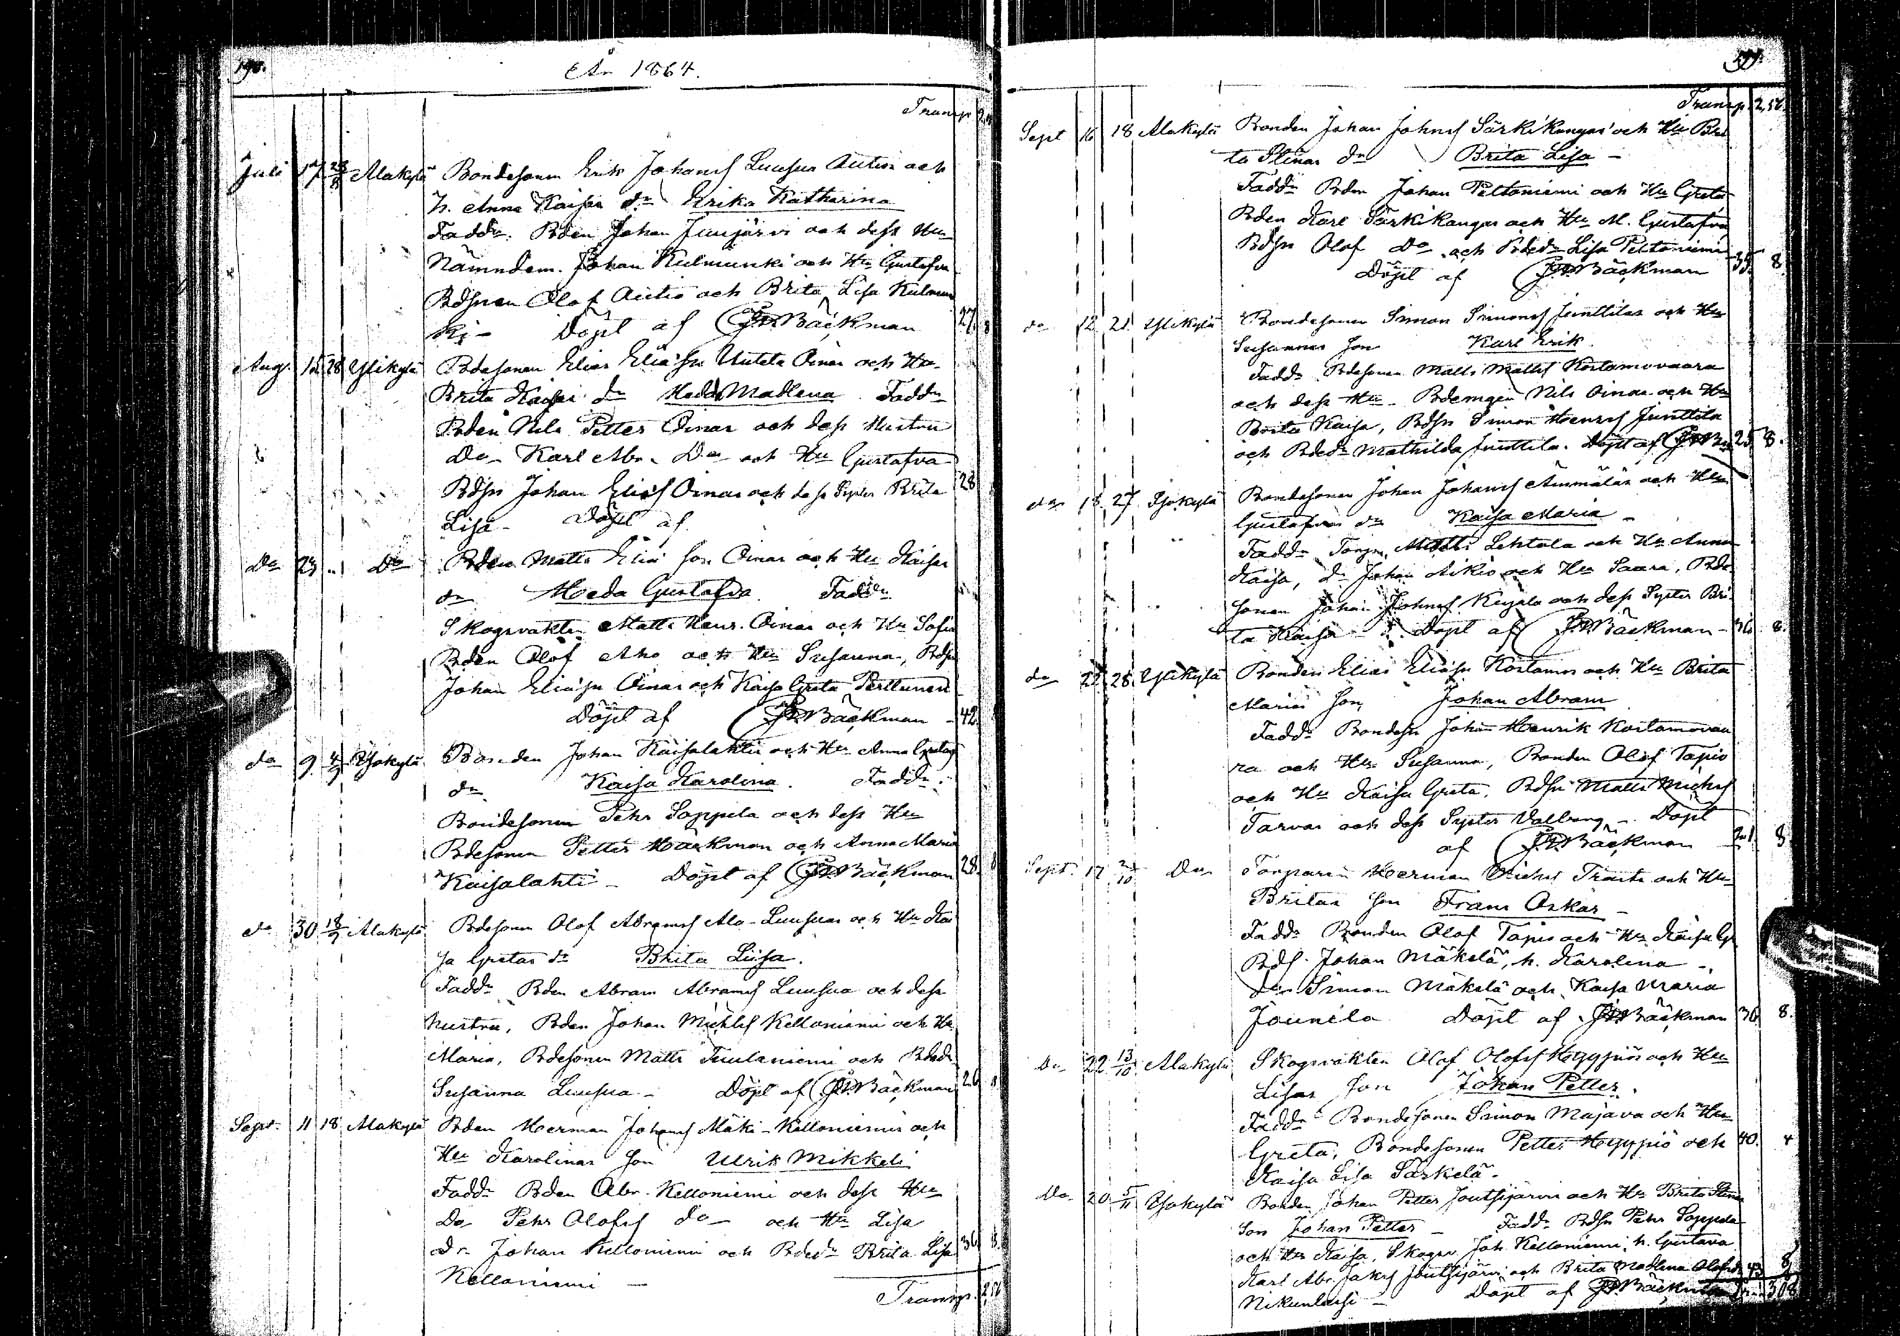 190.
År 1864.
Transp. 2,
Juli 17 28/8 Alakylä Bondesonen Erik Johans Luusua Autio och
h. Anna Kaisas dr Erika Katharina
Faddr. Bden Johan Juujärvi och dess Hu
Nämndem. Johan Kulmunki och Hu Gustafva
Bdsnen Olof Autio och Brita Lisa Kulmun
ki - Döpt af Bäckman 27. 8
Aug. 12 28 Ylikylä Bdesonen Elias Eliass Oinas och Hu
Brita Kaisas dr Hedda Madlena Faddr
Bden Nils Petter Oinas och dess Hustru
Do Karl Abr. Do och Hu Gustafva
Bdsn Johan Elias Oinas och dess Syster Brita 28
Lisa - Döpt af
Do 23 " Do Bden Matts Elias son Oinas och Hu Kaisas
dr Heda Gustafva. Faddr
Skogsvakten Matts Henr. Oinas och Hu Sofia
Bden Olof Aho och Hu Susanna, Bdsn
Johan Eliass Oinas och Kaisa Greta Perttunen
Döpt af Bäckman - 42
do 9 4/9 Ojakylä Bonden Johan Kaisalahti och Hu Anna Gretas
dr Kaisa Karolina. Faddr:
Bondesonen Pehr Soppela och dess Hu
Bdesonen Petter Hackman och Anna Maria
Kaisalahti - Döpt af Bäckman 28 8
do 30 18/9 Alakylä Bdesonen Olof Abrams Ala-Luusuas och Hu Kai
sa Gretas dr Brita Liisa.
Faddr Bden Abram Abrams Luusua och dess
hustru, Bden Johan Michels Kelloniemi och Hu
Maria, Bdesonen Matts Tuulaniemi och Bdedr
Susanna Luusua - Döpt af Bäckman 26 8
Sept. 11 18 Alakylä Bden Herman Johans Mäki-Kelloniemis och
Hu Karolinas son Ulrik Mikkeli
Faddr Bden Abr. Kelloniemi och dess Hu
Do Pehr Olofs do - och Hu Lisa
do Johan Kelloniemi och Bdedr Brita Lisa 36 8.
Kelloniemi -
Transp. 2,56
Transp. 2,56.
Sept 16 18 Alakylä Bonden Johan Johns Särkikangas och Hu Bri
ta Stinas dr Brita Lisa -
Faddr Bden Johan Peltoniemi och Hu Greta
Bden Karl Särkikangas och Hu M. Gustafva
Bdsn Olof do och Bdedr Lisa Peltoniemi 35. 8.
Döpt af Bäckman
do 12 21 Ylikylä Bondesonen Simon Simons Junttilas och Hu
Susannas son Karl Erik.
Faddr Bdesonen Matts Matts Kostamovaara
och dess Hu - Bdemågen Nils Oinas och Hu
Brita Kaisa, Bdsn Simon Henrs Junttila
och Bdedr Mathilda Junttila. Döpt af 25 8.
do 18 27 Ojakylä Bondesonen Johan Johans Ämmäläs och Hu
Gustafvas dr Kaisa Maria -
Faddr Torpn Matts Lehtola och Hu Anna
Kaisa, do Johan Aikio och Hu Saara, Bde
sonen Johan Johns Kujala och dess Syster Bri-
ta Kaisa - Döpt af Bäckman - 36 8.
do 22 28 Ylikylä Bonden Elias Eliass Kostamos och Hu Brita
Marias son Johan Abram
Faddr Bondesn Johan Henrik Kostamovaa
ra och Hu Susanna, Bonden Olof Tapio
och Hu Kaisa Greta, Bdsn Matts Michels
Tarvas och dess Syster Valborg - Döpt
af Bäckman 21 8
Sept. 17 2/10 Do Torparen Herman Michels och Hu
Britas son Frans Oskar -
Faddr Bonden Olof Tapio och Hu Kaisa Gr.
Bds. Johan Mäkelä, h. Karolina -
Simon Mäkelä och Kaisa Maria
Jounila Döpt af Bäckman 36 8.
Do 22 13/10 Alakylä Skogsvakten Olof Olofs Hyypiös och Hu
Lisas son Johan Petter.
Faddr Bondesonen Simon Majava och Hu
Greta, Bondesonen Petter Hyypiö och 40. 4
Kaisa Lisa Särkelä.
Do 20 5/11 Ojakylä Bonden Johan Petter Joutsijärvi och Hu Brita Stinas
son Johan Petter - Faddr Bdsn Pehr Soppela
och Hu Kaisa, Skogsv. Joh. Kelloniemi, h. Gustava
Karl Abr. Jaks Joutsijärvi och Brita Madlena Olofsdr 43 8
- Döpt af Bäckman 308